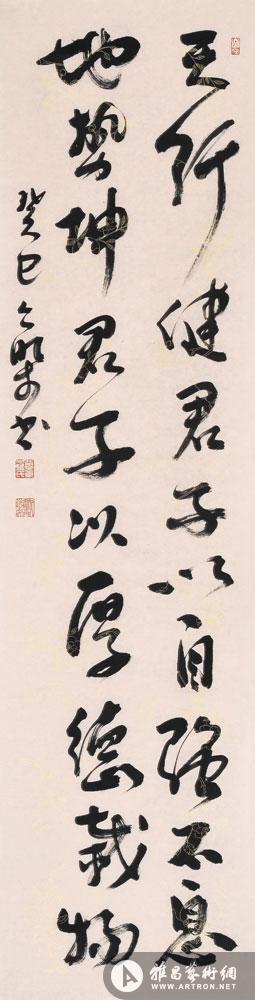 天行健君子以自强不息
地势坤君子以厚德载物
癸巳
书
雅昌藝術網
WWW.ARTRON.NET